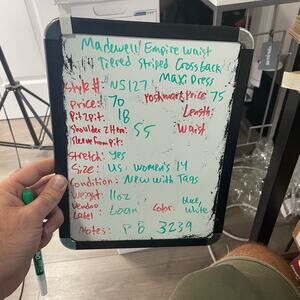 Madewell Empire Waist
Tiered Striped Cross back
Maxi Dress
Style #: NS127
Price: 70 Poshmark Price 75
Pit 2 pit: 18 Length:
Shoulder 2 Hem: 55 Waist
Sleeve from Pit:
Stretch: Yes
Size: US Women's 14
Condition: New with Tags
Weight: 11oz
Vendoo Label: Loan Color: blue, white
Notes: PB 3239